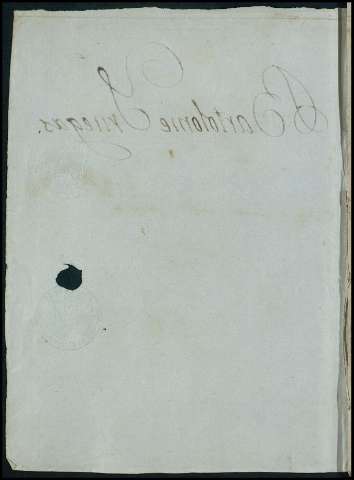 Bartolome Yruegas.